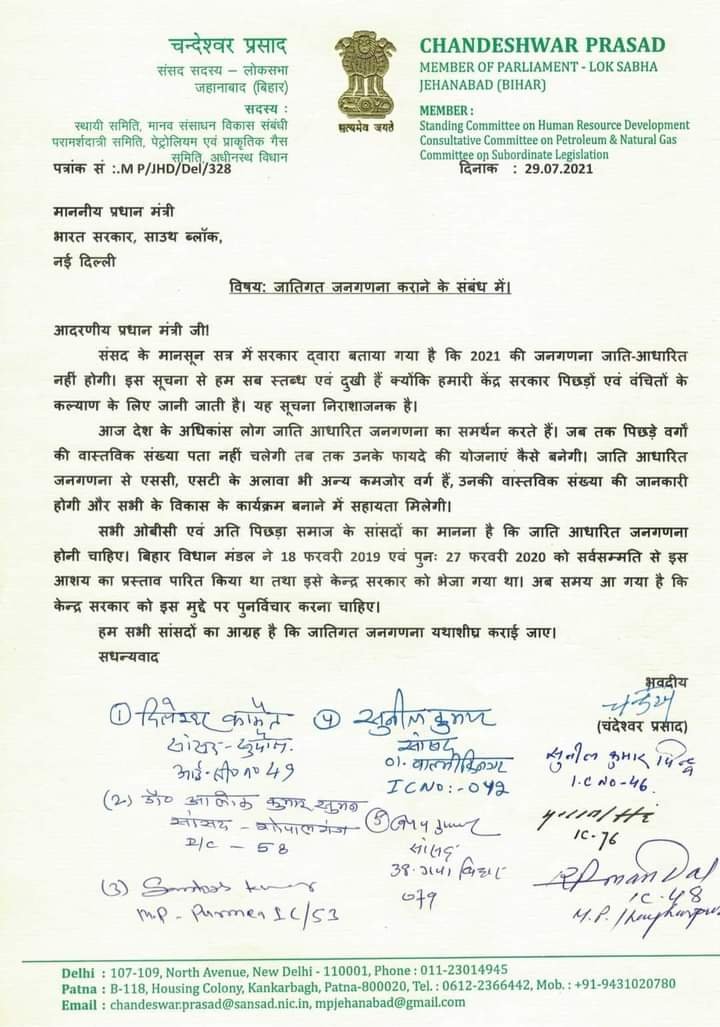 चन्देश्वर प्रसाद
संसद सदस्य – लोकसभा
जहानाबाद (बिहार)
सदस्य :
स्थायी समिति, मानव संसाधन विकास संबंधी
परामर्शदात्री समिति, पेट्रोलियम एवं प्राकृतिक गैस
समिति, अधीनस्थ विधान
सत्यमेव जयते
CHANDESHWAR PRASAD
MEMBER OF PARLIAMENT - LOK SABHA
JEHANABAD (BIHAR)
MEMBER :
Standing Committee on Human Resource Development
Consultative Committee on Petroleum & Natural Gas
Committee on Subordinate Legislation
पत्रांक सं :.M P/JHD/Del/328 दिनाक : 29.07.2021
माननीय प्रधान मंत्री
भारत सरकार, साउथ ब्लॉक,
नई दिल्ली
विषय: जातिगत जनगणना कराने के संबंध में।
आदरणीय प्रधान मंत्री जी!
संसद के मानसून सत्र में सरकार द्वारा बताया गया है कि 2021 की जनगणना जाति-आधारित
नहीं होगी। इस सूचना से हम सब स्तब्ध एवं दुखी हैं क्योंकि हमारी केंद्र सरकार पिछड़ों एवं वंचितों के
कल्याण के लिए जानी जाती है। यह सूचना निराशाजनक है।
आज देश के अधिकांस लोग जाति आधारित जनगणना का समर्थन करते हैं। जब तक पिछड़े वर्गो
की वास्तविक संख्या पता नहीं चलेगी तब तक उनके फायदे की योजनाएं कैसे बनेगी। जाति आधारित
जनगणना से एससी, एसटी के अलावा भी अन्य कमजोर वर्ग हैं, उनकी वास्तविक संख्या की जानकारी
होगी और सभी के विकास के कार्यक्रम बनाने में सहायता मिलेगी।
सभी ओबीसी एवं अति पिछड़ा समाज के सांसदों का मानना है कि जाति आधारित जनगणना
होनी चाहिए। बिहार विधान मंडल ने 18 फरवरी 2019 एवं पुनः 27 फरवरी 2020 को सर्वसम्मति से इस
आशय का प्रस्ताव पारित किया था तथा इसे केन्द्र सरकार को भेजा गया था। अब समय आ गया है कि
केन्द्र सरकार को इस मुद्दे पर पुनर्विचार करना चाहिए।
हम सभी सांसदों का आग्रह है कि जातिगत जनगणना यथाशीघ्र कराई जाए।
सधन्यवाद
भवदीय
(चंदेश्वर प्रसाद)
① दिलेश्वर कामैत
सांसद - सुपौल
आई.सी० no 49
(2) डॉ० आलोक कुमार सुमन
सांसद - गोपालगंज
I/C - 58
(3) Santosh Kumar
M.P - Purnea IC/53
④ सुनील कुमार
सांसद
01. वाल्मीकिनगर
IC No:- 042
⑤ कुमार
सांसद
38. गया बिहार
079
सुनील कुमार पिन्टू
I.C No-46.
IC-76
IC-48
M.P.
Delhi : 107-109, North Avenue, New Delhi - 110001, Phone : 011-23014945
Patna : B-118, Housing Colony, Kankarbagh, Patna-800020, Tel. : 0612-2366442, Mob. : +91-9431020780
Email : chandeswar.prasad@sansad.nic.in, mpjehanabad@gmail.com